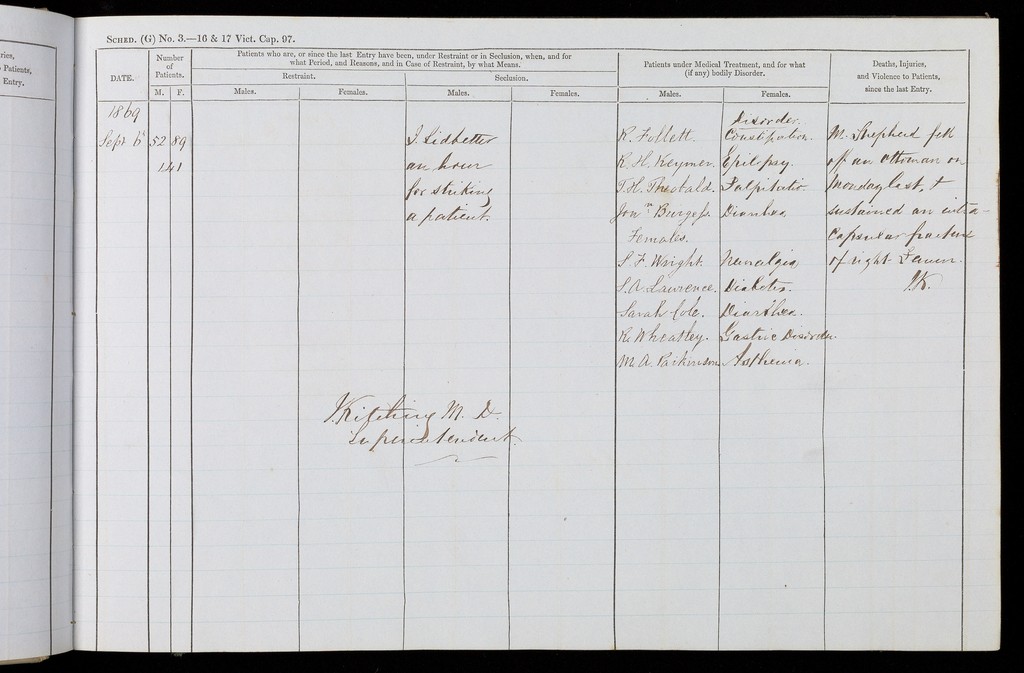 ries,
Patients,
Entry.
SCHED. (G) No. 3.—16 & 17 Vict. Cap. 97.
DATE.
Number of Patients.
M. F.
Patients who are, or since the last Entry have been, under Restraint or in Seclusion, when, and for
what Period, and Reasons, and in Case of Restraint, by what Means.
Restraint.
Seclusion.
Males.
Females.
Males.
Females.
Patients under Medical Treatment, and for what
(if any) bodily Disorder.
Males.
Females.
Deaths, Injuries,
and Violence to Patients,
since the last Entry.
1869
Disorder.
Sept 6 52 89 J. Sidbetter R. Follett. Constipation. M. Shepherd fell
141 an hour R. H. Keymer. Epilepsy. off an Ottoman on
for striking J. H. Theobald. Palpitatio. Monday last, &
a patient. Jonn Burgess. Diarrhea sustained an intra-
Females. Capsular fracture
S. F. Wright. Neuralgia of right Femur.
S. A. Lawrence. Diabetes. J.K.
Sarah Cole. Diarrhea.
R. Wheatley. Gastric Disorder.
M. A. Parkinson Asthenia.
J. Kitching M. D.
Superintendent.